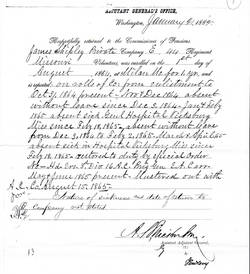 ADJUTANT GENERAL'S OFFICE,
Washington, January 6, 1888.
Respectfully returned to the Commissioner of Pensions.
James Shipley Private, Company E, 44 Regiment
Missouri Volunteers, was enrolled on the 1st day of
August 1864, at for 1 yr, and
reported on rolls to from enlistment to
Oct 31, 1864 present. Nov & Dec 1864 absent
without leave since Dec 2, 1864. Jan & Feb
1865 absent sick Genl Hospital Vicksburg
Miss since Feb 18, 1865, absent without leave
from Dec 2, 1864 to Feb 2, 1865. Mar & Apl 1865
absent sick in Hospital Vicksburg Miss since
Feb 18, 1865. restored to duty by Special Order
No. Hd. Qrs. Div 16 A.C.
May & June 1865 present. Mustered out with
Co August 15, 1865.
Nature of sickness and date of return to
Company not stated
Assistant Adjutant General.